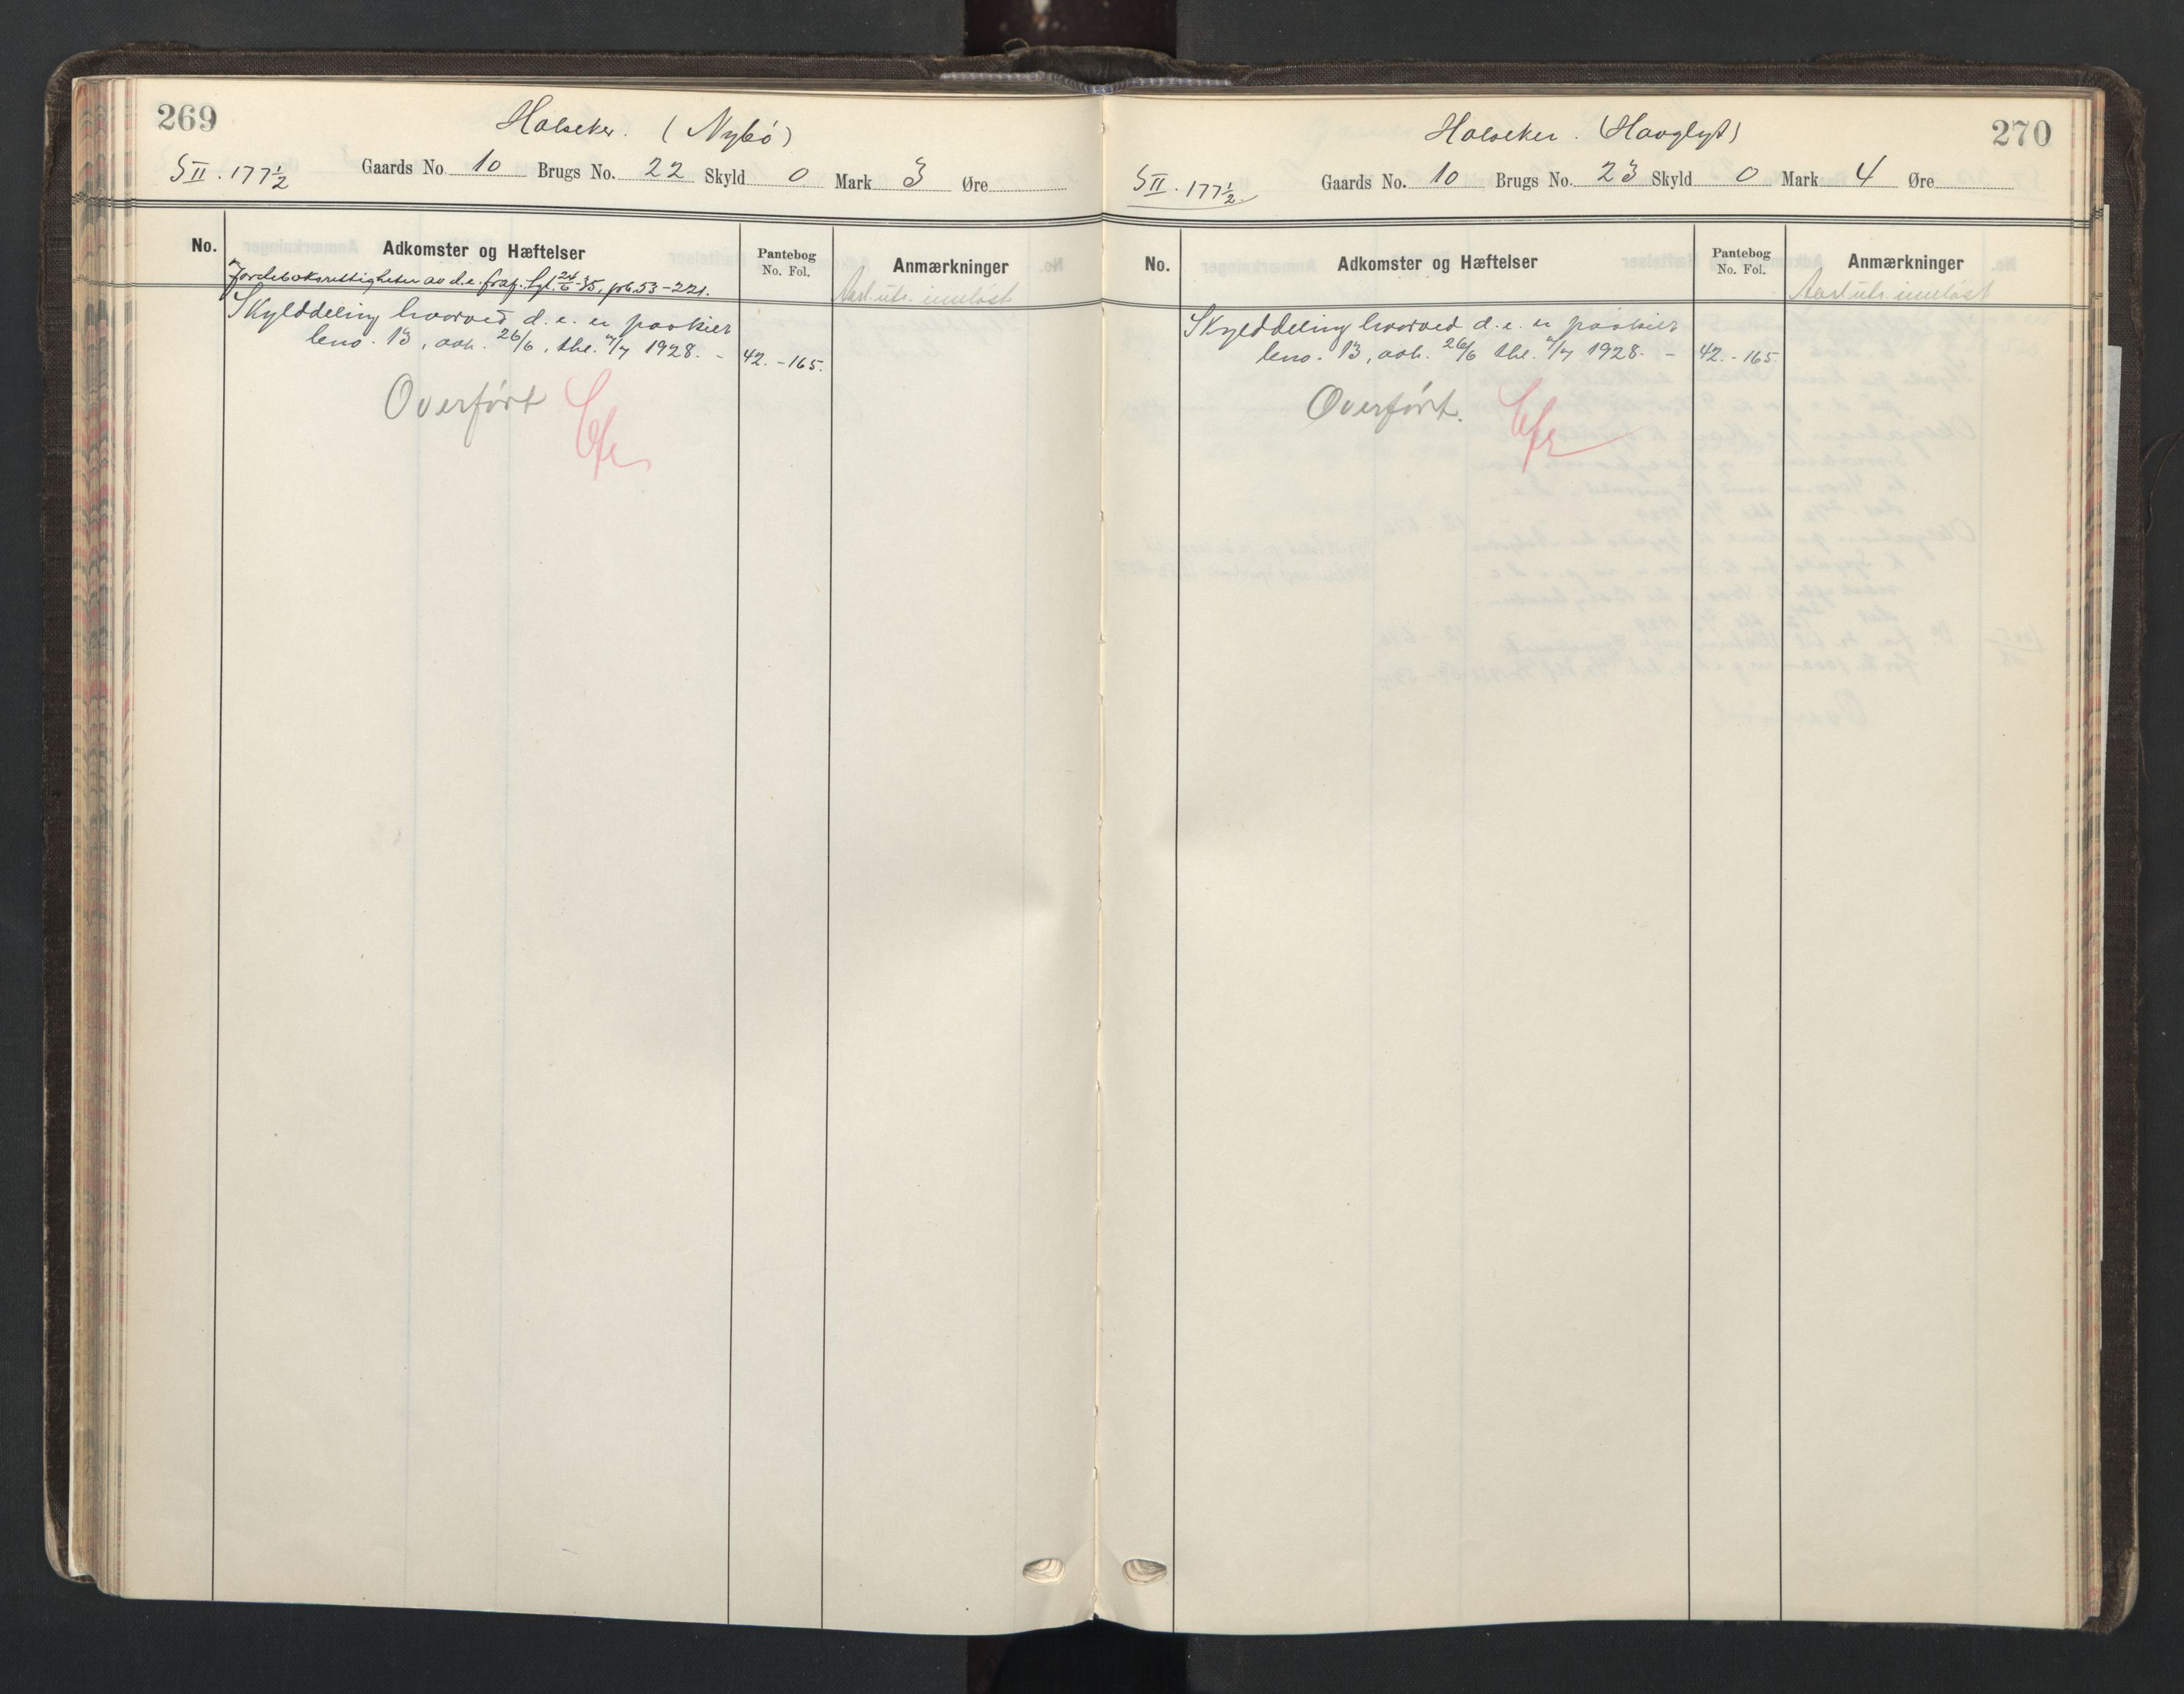 269
Halseker. (Nybö)
S II. 177 1/2
Gaards No. 10 Brugs No. 22 Skyld 0 Mark 3 Øre
No.
Adkomster og Hæftelser
Pantebog
No. Fol.
Anmærkninger
Jordeboksrettigheter av d.e. fraf. tgl. 24/6-35, pb. 53-221.
utr. innløst
Skylddeling hvorved d. e. er
bno. 13, avh. 26/6, thl. 4/7 1928. - 42. - 165.
Overført
270
Halseker. (Havglyt)
S II. 177 1/2
Gaards No. 10 Brugs No. 23 Skyld 0 Mark 4 Øre
No.
Adkomster og Hæftelser
Pantebog
No. Fol.
Anmærkninger
utr. innløst
Skylddeling hvorved d. e. er
bno. 13, avh. 26/6 thl. 4/7 1928. - 42. - 165.
Overført.